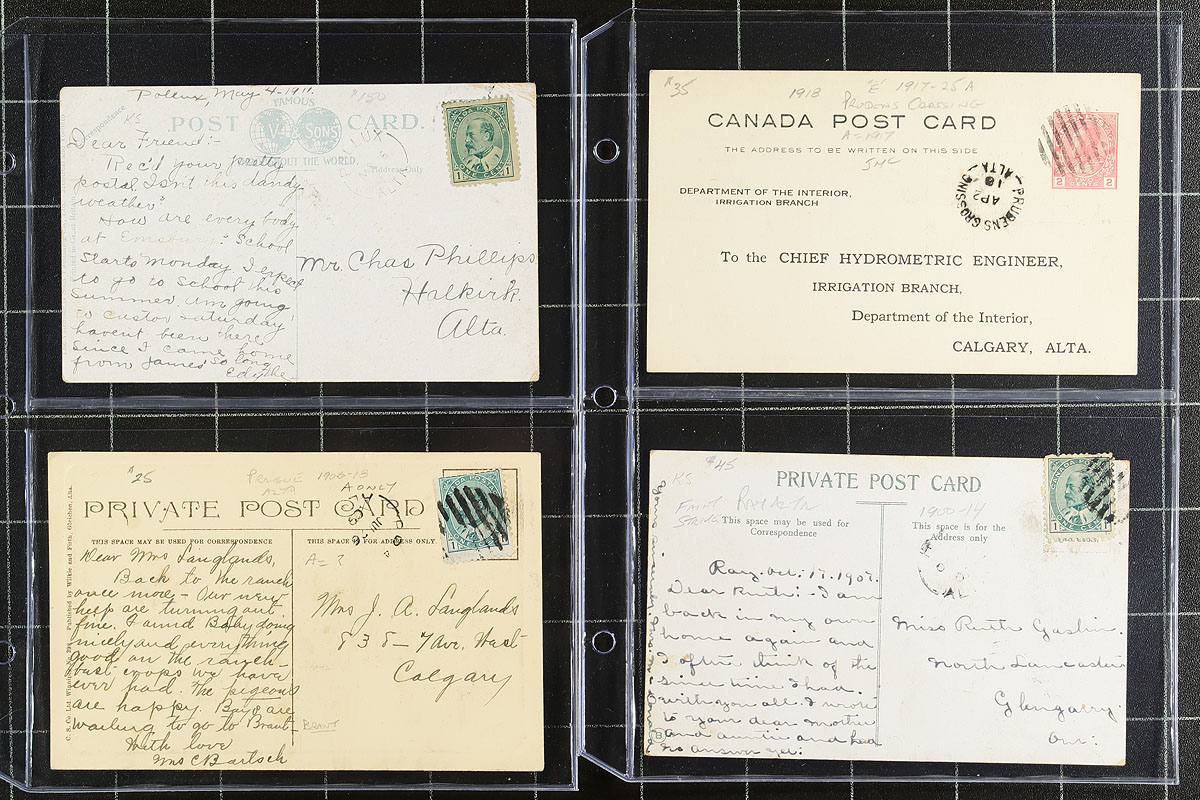 Pollux, May 4-1911.
$150
KS
Correspondence
FAMOUS
POST CARD.
V & SONS
THROUGHOUT THE WORLD.
Address Only
CANADA POSTAGE
1 ONE CENT 1
Dear Friend:-
Rec'd your pretty
postal. Isnt this dandy
weather?
How are every body
at School
starts Monday. I expect
to go to School this
summer. am going
to Castor Saturday
havent been there
since I came home
from James' So long
Edythe
Mr. Chas Phillips
Halkirk.
Alta.
$35
1918
"E" 1917-25 A
PRUDENS CROSSING
CANADA POST CARD
A=1917
THE ADDRESS TO BE WRITTEN ON THIS SIDE
JMC
2 CENTS 2
PRUDENS CROSSING
AP 2
18
ALTA
DEPARTMENT OF THE INTERIOR,
IRRIGATION BRANCH
To the CHIEF HYDROMETRIC ENGINEER,
IRRIGATION BRANCH,
Department of the Interior,
CALGARY, ALTA.
$25
1906-18
ALTA
A ONLY
PRIVATE POST CARD
THIS SPACE MAY BE USED FOR CORRESPONDENCE
THIS SPACE FOR ADDRESS ONLY
A= ?
C. S. Co. Ltd. Winnipeg No. 394. Published by Wilkie and Firth, Gleichen, Alta.
Dear Mrs Langlands,
Back to the ranch
once more - Our new
help are turning out
fine. Found Baby doing
nicely and everything
good on the ranch-
best crops we have
ever had. The pigeons
are happy. Boys are
waiting to go to Brant-
With love
Mrs C Bartsch
BRANT
Mrs J. A. Langlands
838 - 7 Ave. West
Calgary
KS
$45
Faint
Strike
RAY ALTA
1900-14
PRIVATE POST CARD
This space may be used for
Correspondence
This space is for the
Address only
Ray. Oct. 17. 1907.
Dear Ruth:- I am
back in my own
home again and
I often think of the
time I had
with you all. I wrote
to your dear mother
and auntie and had
no answer yet.
Miss Ruth
North Lancaster
Glengarry
Ont.